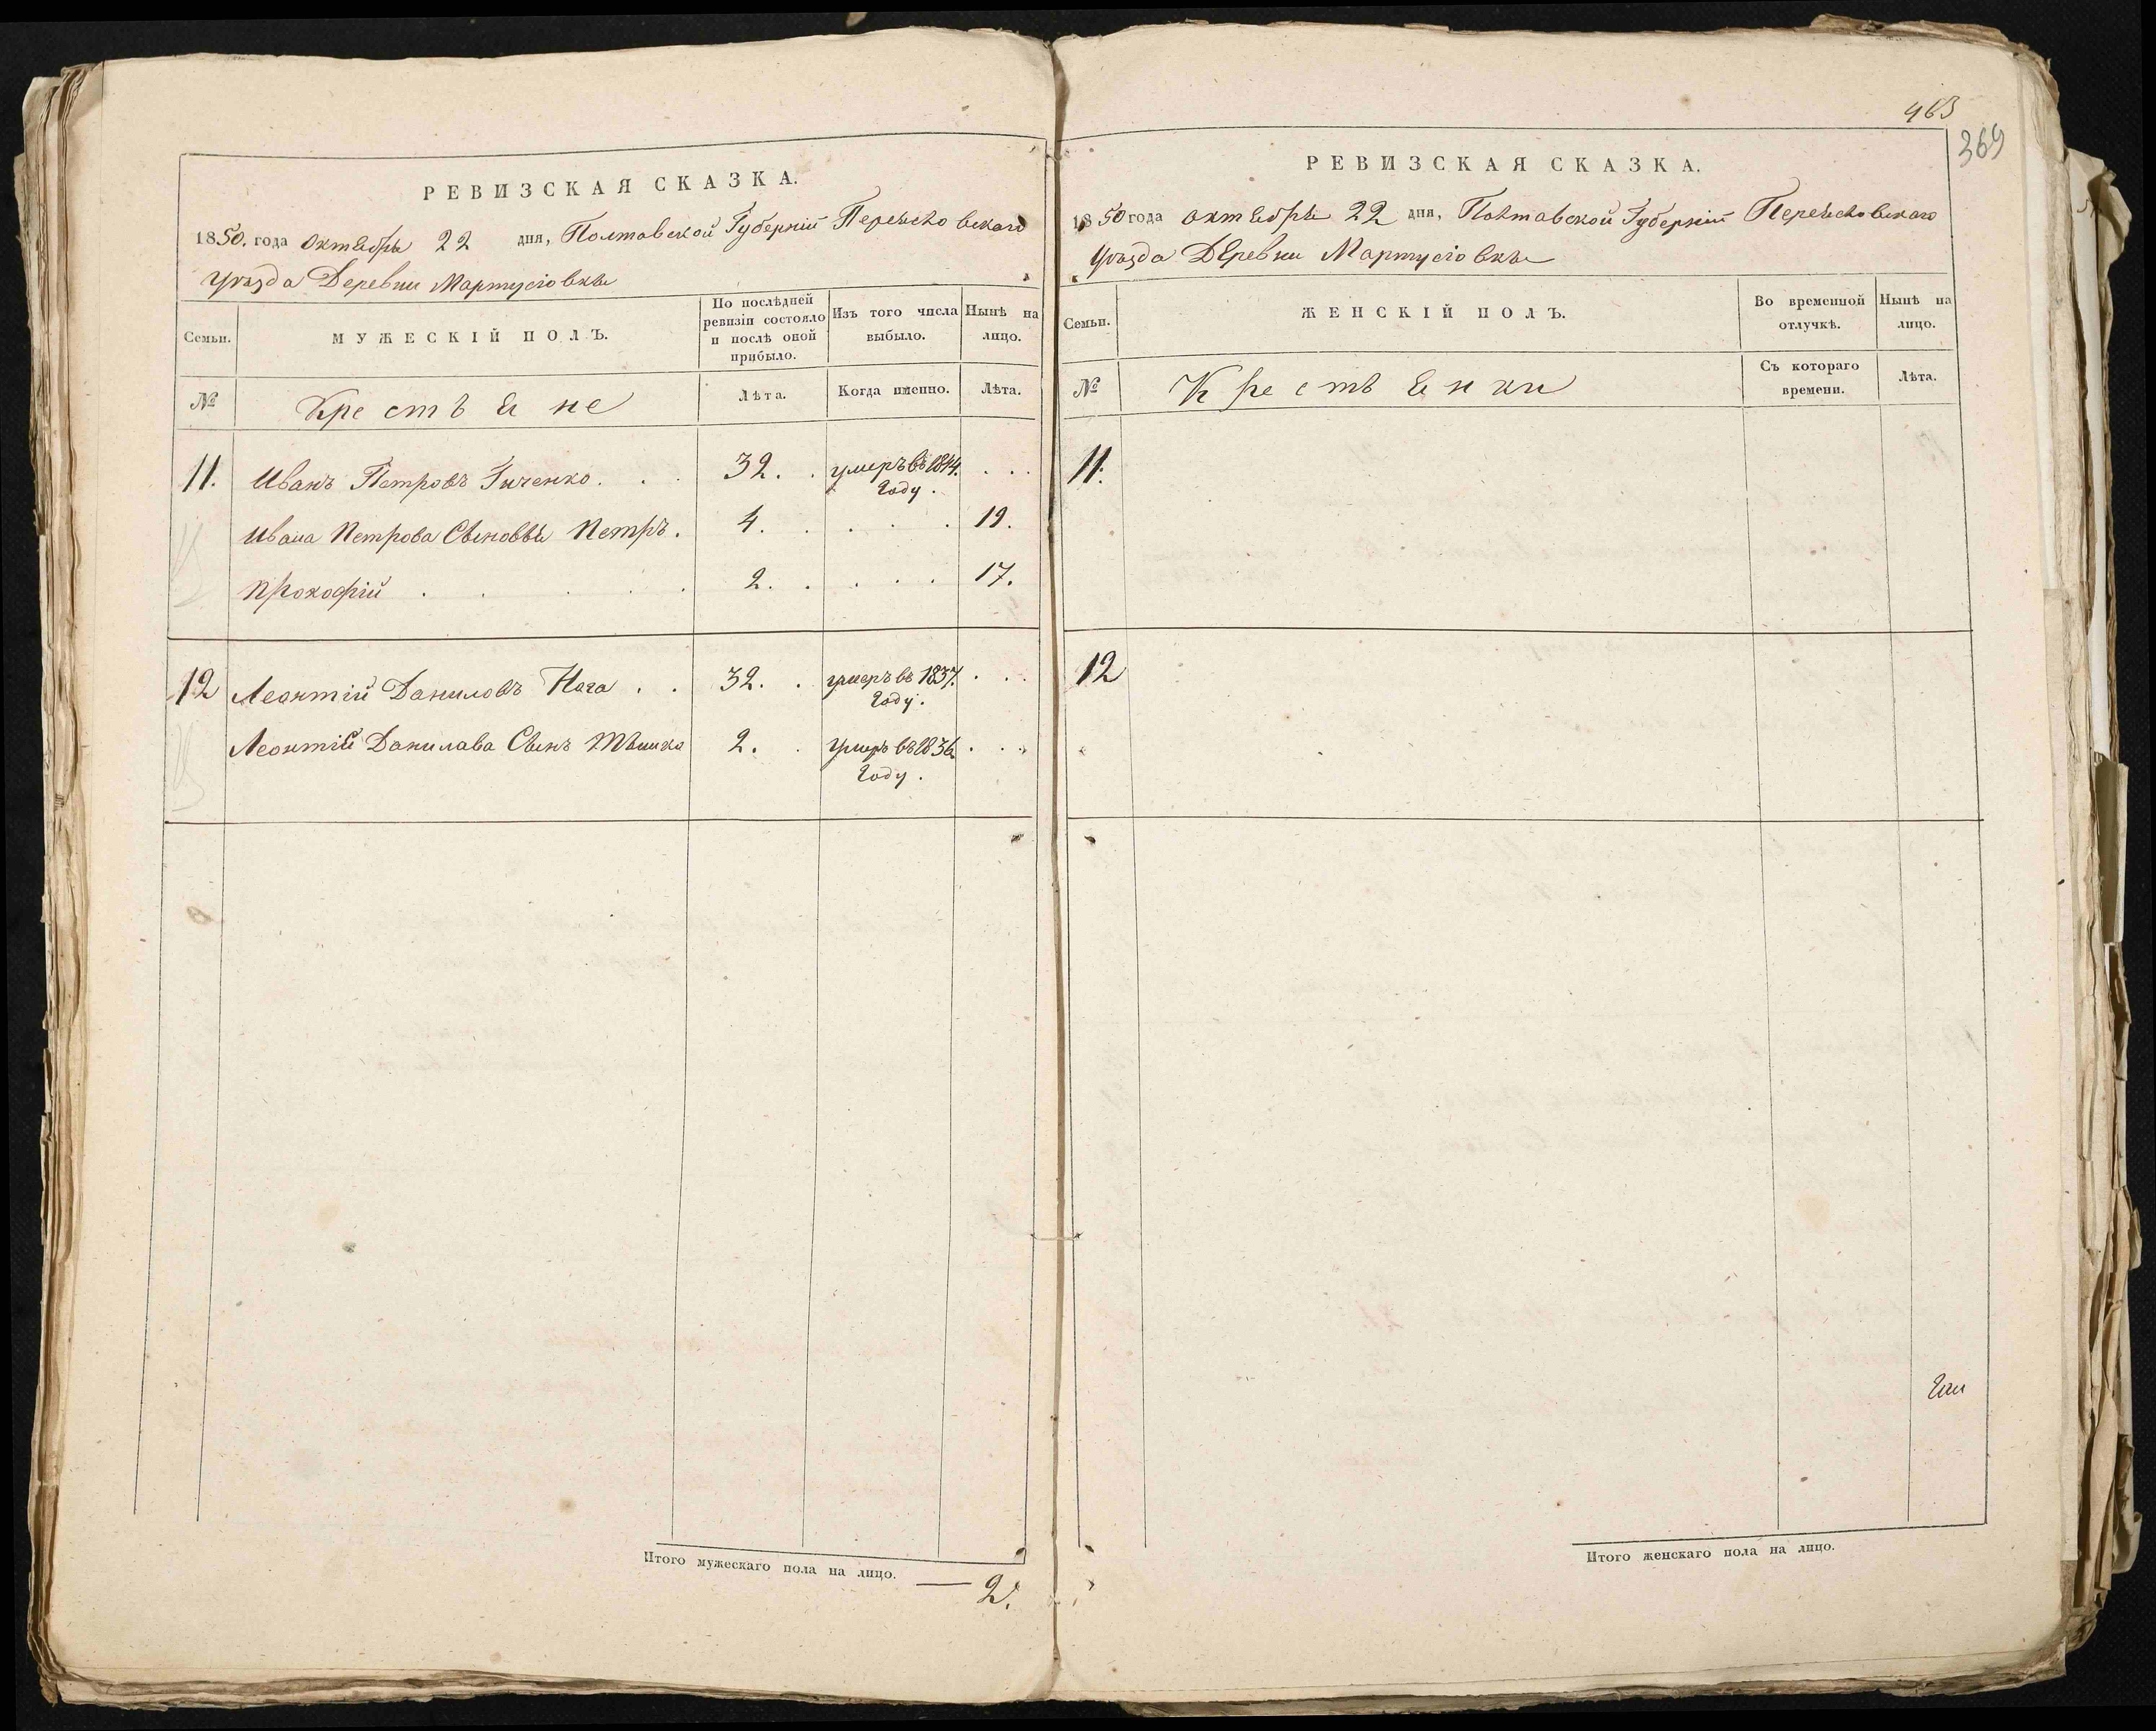 РЕВИЗСКАЯ СКАЗКА.
1850. года октября 22 дня, Полтавской Губерніи Переясловскаго
уѣзда Деревни Мартусіовки
Семьи.
МУЖЕСКІЙ ПОЛЪ.
По послѣдней ревизіи состояло и послѣ оной прибыло.
Изъ того числа выбыло.
Нынѣ на лицо.
№
Крестьяне
Лѣта.
Когда именно.
Лѣта.
11. Иванъ Петровъ Гиченко . . . 32. . умеръ въ 1844. . . .
году.
Ивана Петрова Сыновья Петръ. 4. . . . . 19.
Прокофій . . . . . 2. . . . . 17.
12 Леонтій Даниловъ Нага . . 32. . умеръ въ 1837. . . .
году.
Леонтія Данилава Сынъ 2. . умеръ въ 1836. . . .
году.
Итого мужескаго пола на лицо. — 2.
463
369
РЕВИЗСКАЯ СКАЗКА.
1850 года октября 22 дня, Полтавской Губерніи Переясловскаго
уѣзда Деревни Мартусіовки
Семьи.
ЖЕНСКІЙ ПОЛЪ.
Во временной отлучкѣ.
Нынѣ на лицо.
№
Крестьянки
Съ котораго времени.
Лѣта.
11.
12
Итого женскаго пола на лицо.